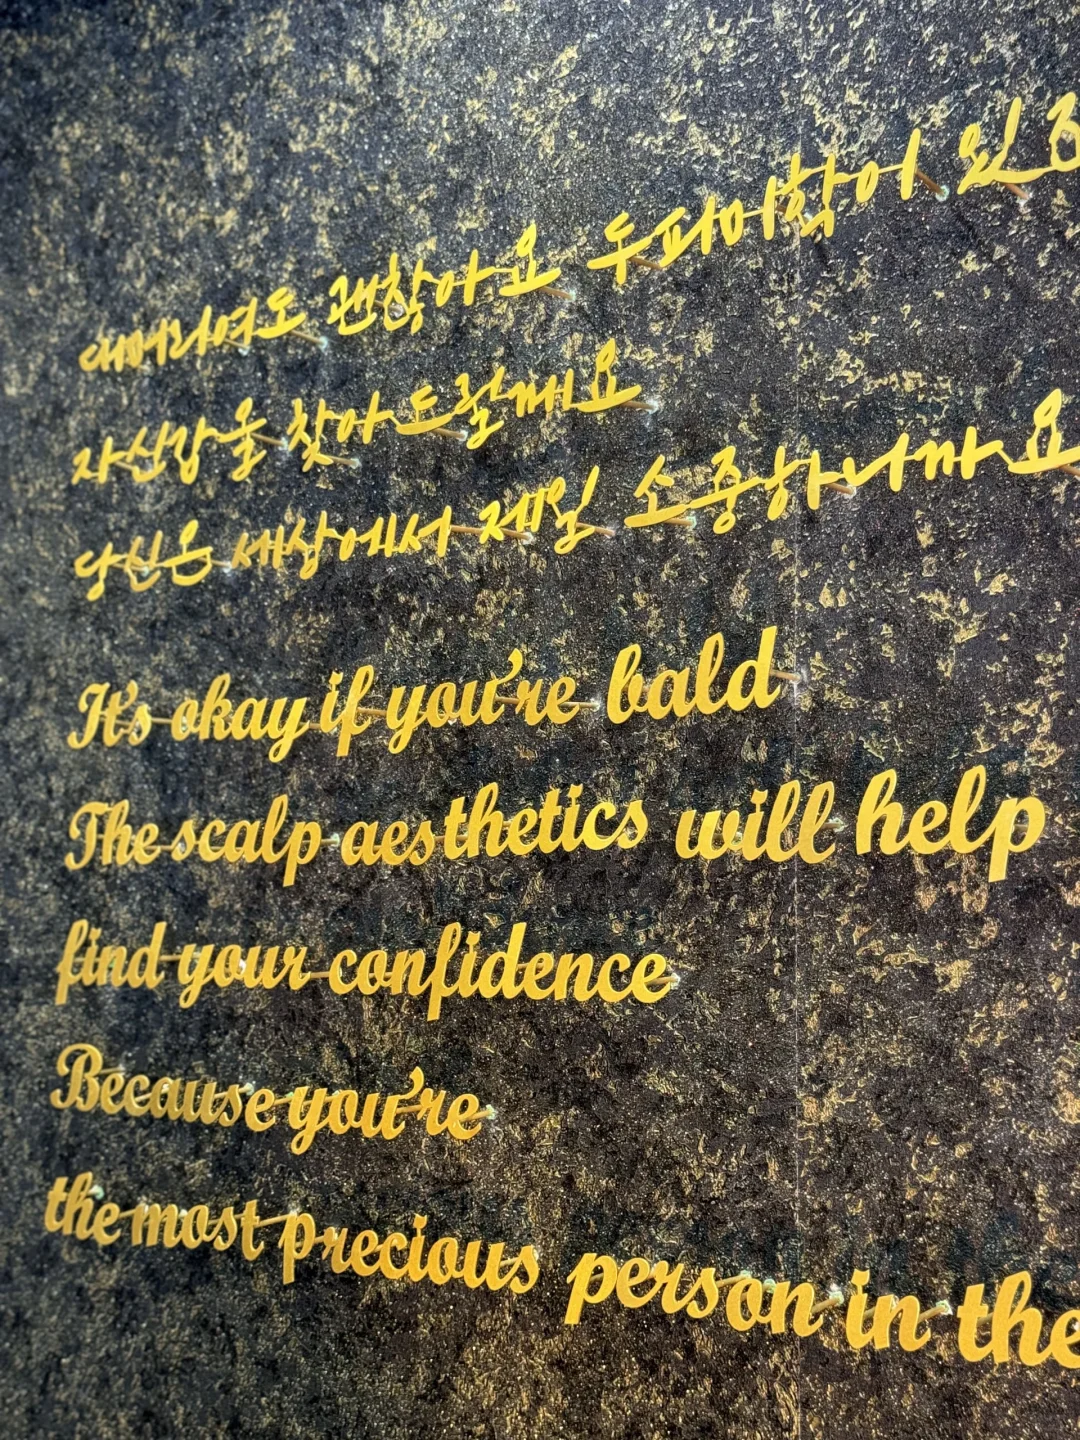 대머리여도 괜찮아요 두피미학이
자신감을 찾아드릴께요
당신은 세상에서 제일 소중하니까요
It's okay if you're bald
The scalp aesthetics will help
find your confidence
Because you're
the most precious person in the